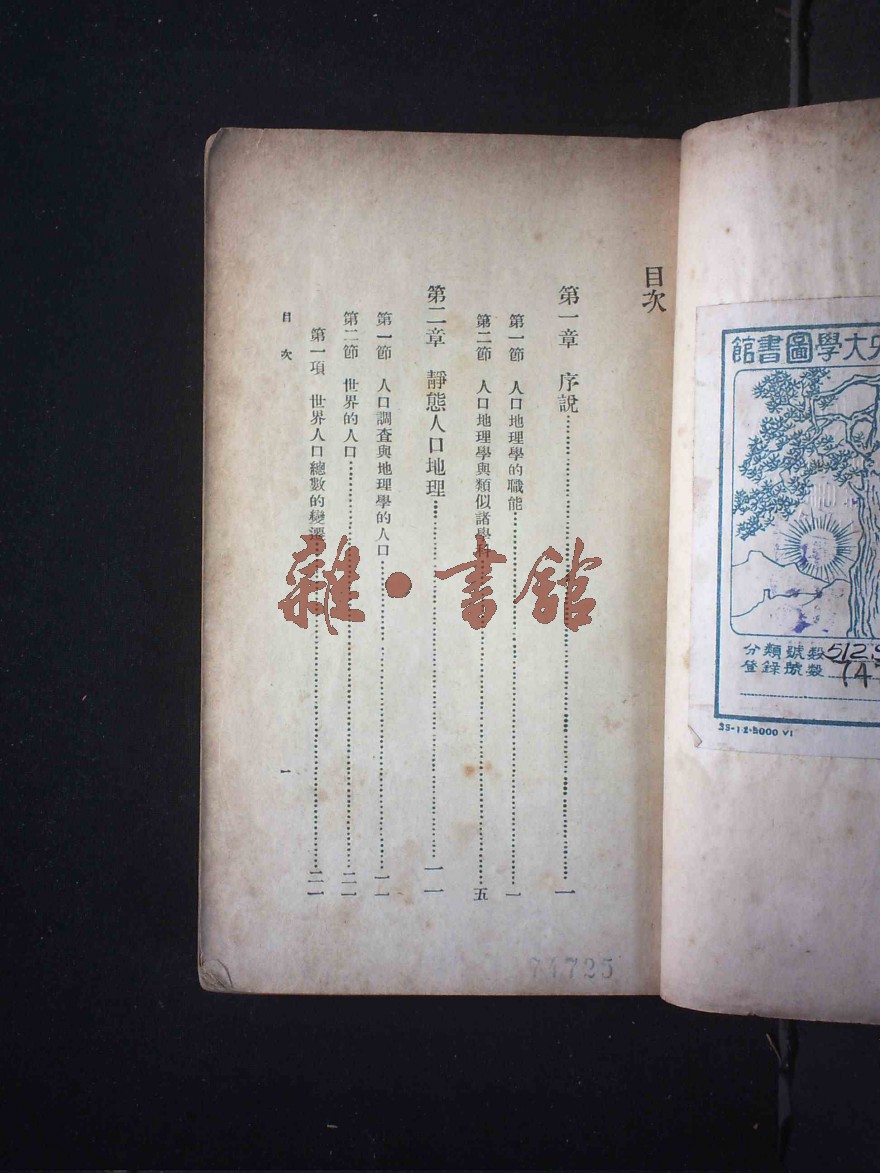 館書圖學大央
分類號數 512.9
登錄號數 74
35-1-2-5000 VI
目次
第一章 序說……一
第一節 人口地理學的職能……一
第二節 人口地理學與類似諸學科……五
第二章 靜態人口地理……一一
第一節 人口調查與地理學的人口……一一
第二節 世界的人口……二一
第一項 世界人口總數的變遷……二一
目次
一
雜·書館
74725